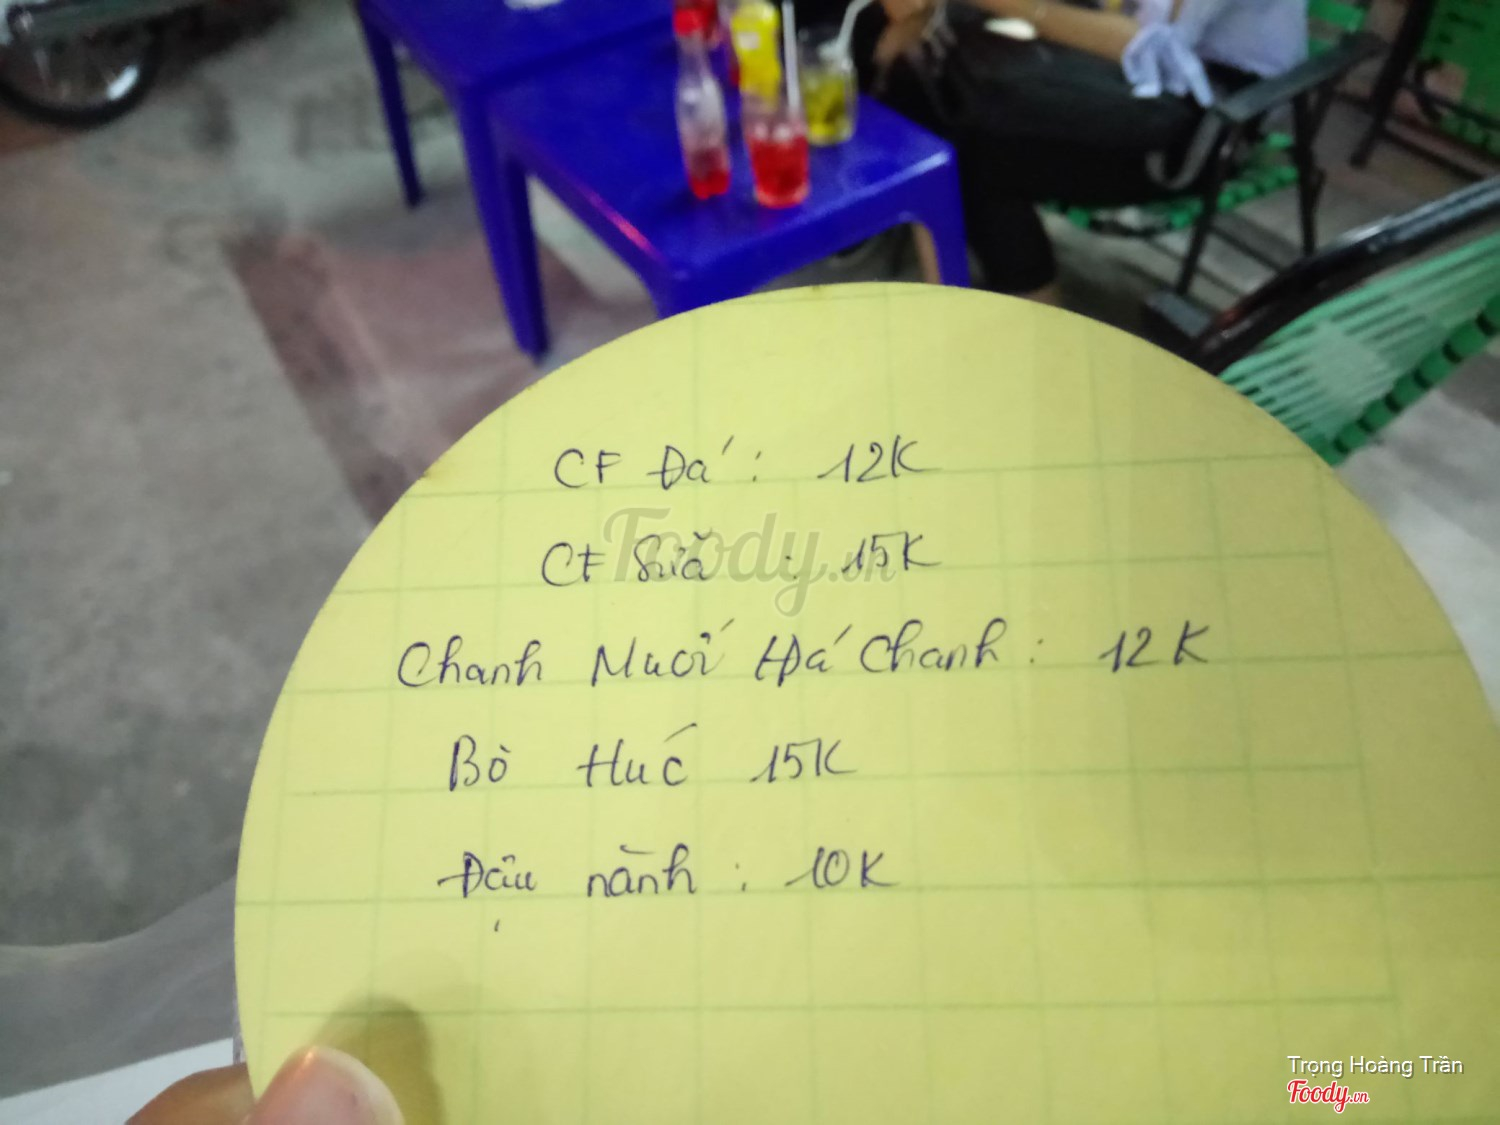 CF Đá : 12K
CF Sữa : 15K
Chanh Muối Đá Chanh : 12K
Bò Húc 15K
Đậu nành : 10K
Foody.vn
Trọng Hoàng Trần
Foody.vn